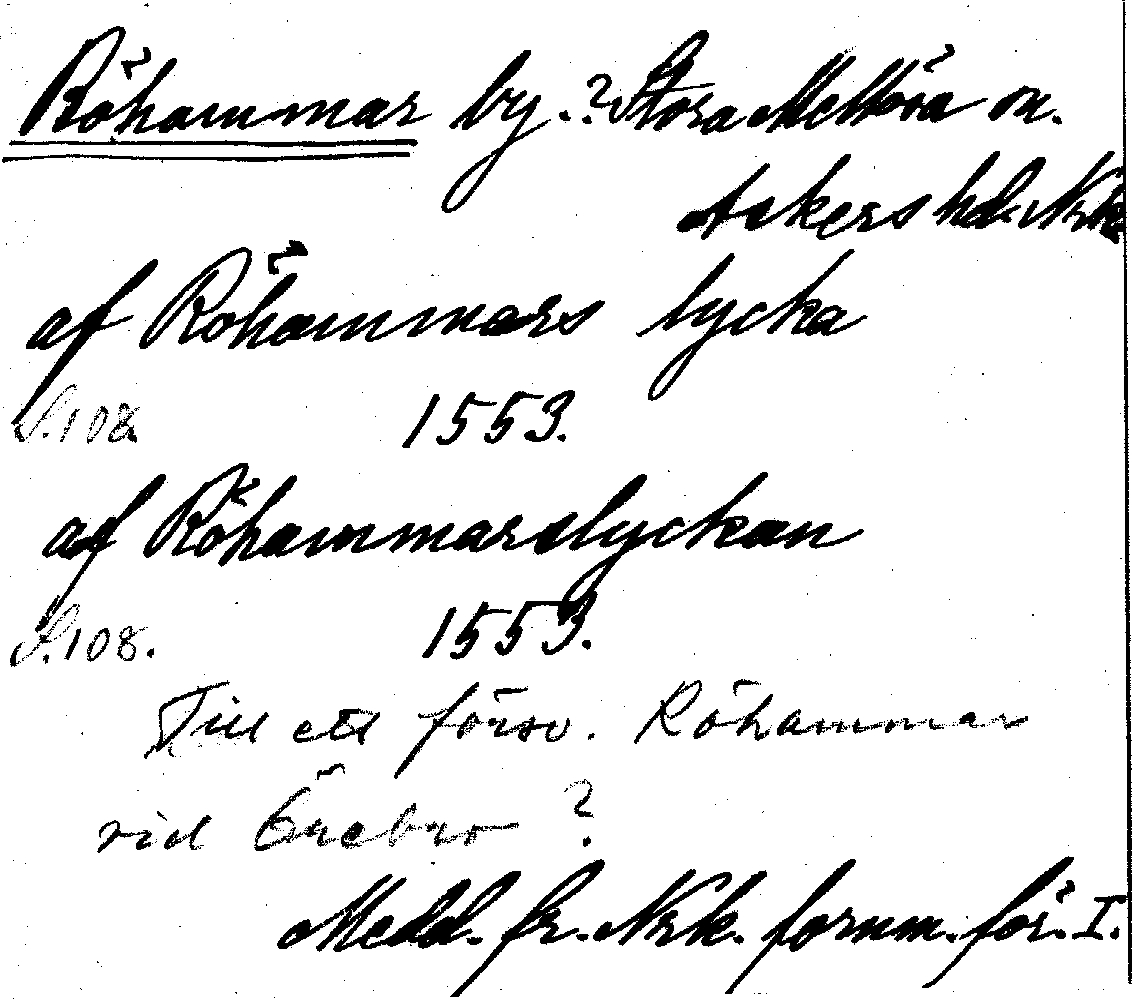 Röhammar by.? Stora Mellösa sn.
Askers hd. Nrke
af Röhammars lycka
S. 108. 1553.
af Röhammarslyckan
S. 108. 1553.
Till ett försv. Röhammar
vid Örebro?
Medd. fr. Nrk. fornm. för. I.